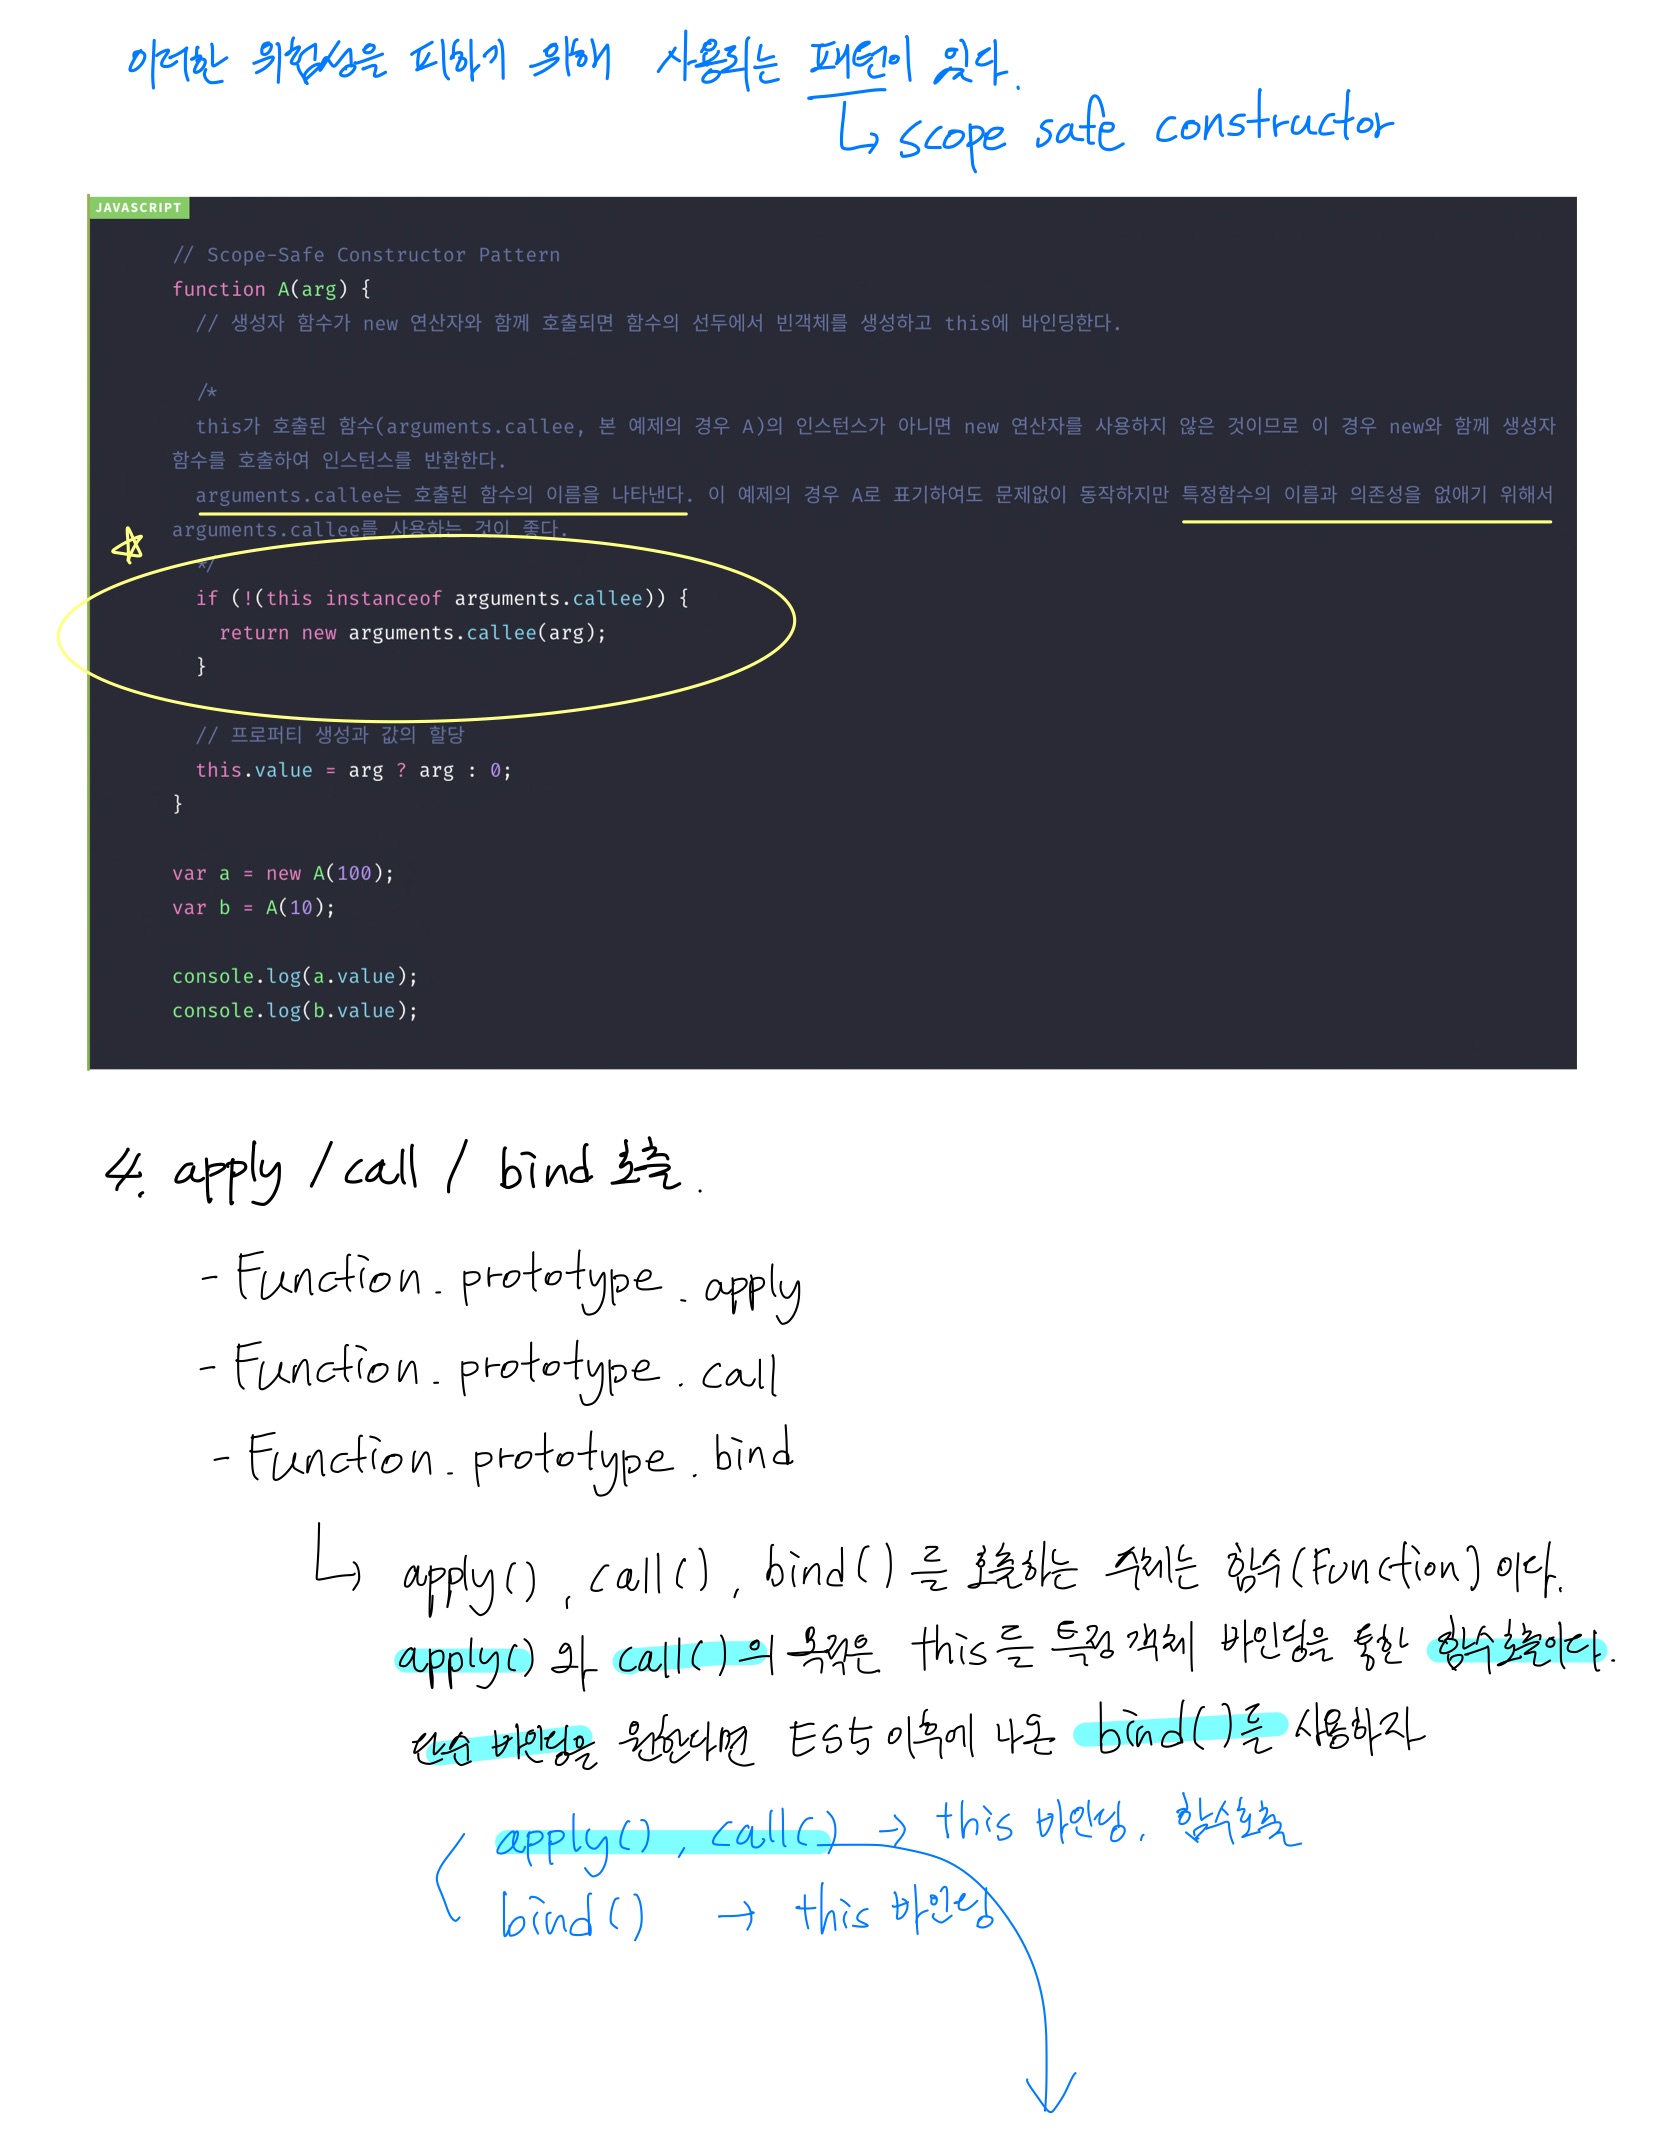 이러한 위험성을 피하기 위해 사용되는 패턴이 있다.
↳ scope safe constructor
JAVASCRIPT
// Scope-Safe Constructor Pattern
function A(arg) {
// 생성자 함수가 new 연산자와 함께 호출되면 함수의 선두에서 빈객체를 생성하고 this에 바인딩한다.
/*
this가 호출된 함수(arguments.callee, 본 예제의 경우 A)의 인스턴스가 아니면 new 연산자를 사용하지 않은 것이므로 이 경우 new와 함께 생성자
함수를 호출하여 인스턴스를 반환한다.
arguments.callee는 호출된 함수의 이름을 나타낸다. 이 예제의 경우 A로 표기하여도 문제없이 동작하지만 특정함수의 이름과 의존성을 없애기 위해서
arguments.callee를 사용하는 것이 좋다.
*/
if (!(this instanceof arguments.callee)) {
return new arguments.callee(arg);
}
// 프로퍼티 생성과 값의 할당
this.value = arg ? arg : 0;
}
var a = new A(100);
var b = A(10);
console.log(a.value);
console.log(b.value);
4. apply / call / bind 호출.
- Function.prototype.apply
- Function.prototype.call
- Function.prototype.bind
↳ apply(), call(), bind()를 호출하는 주체는 함수(Function)이다.
apply()와 call()의 목적은 this를 특정 객체 바인딩을 통한 함수호출이다.
단순 바인딩을 원한다면 ES5 이후에 나온 bind()를 사용하자
apply(), call() → this 바인딩, 함수호출
bind() → this 바인딩